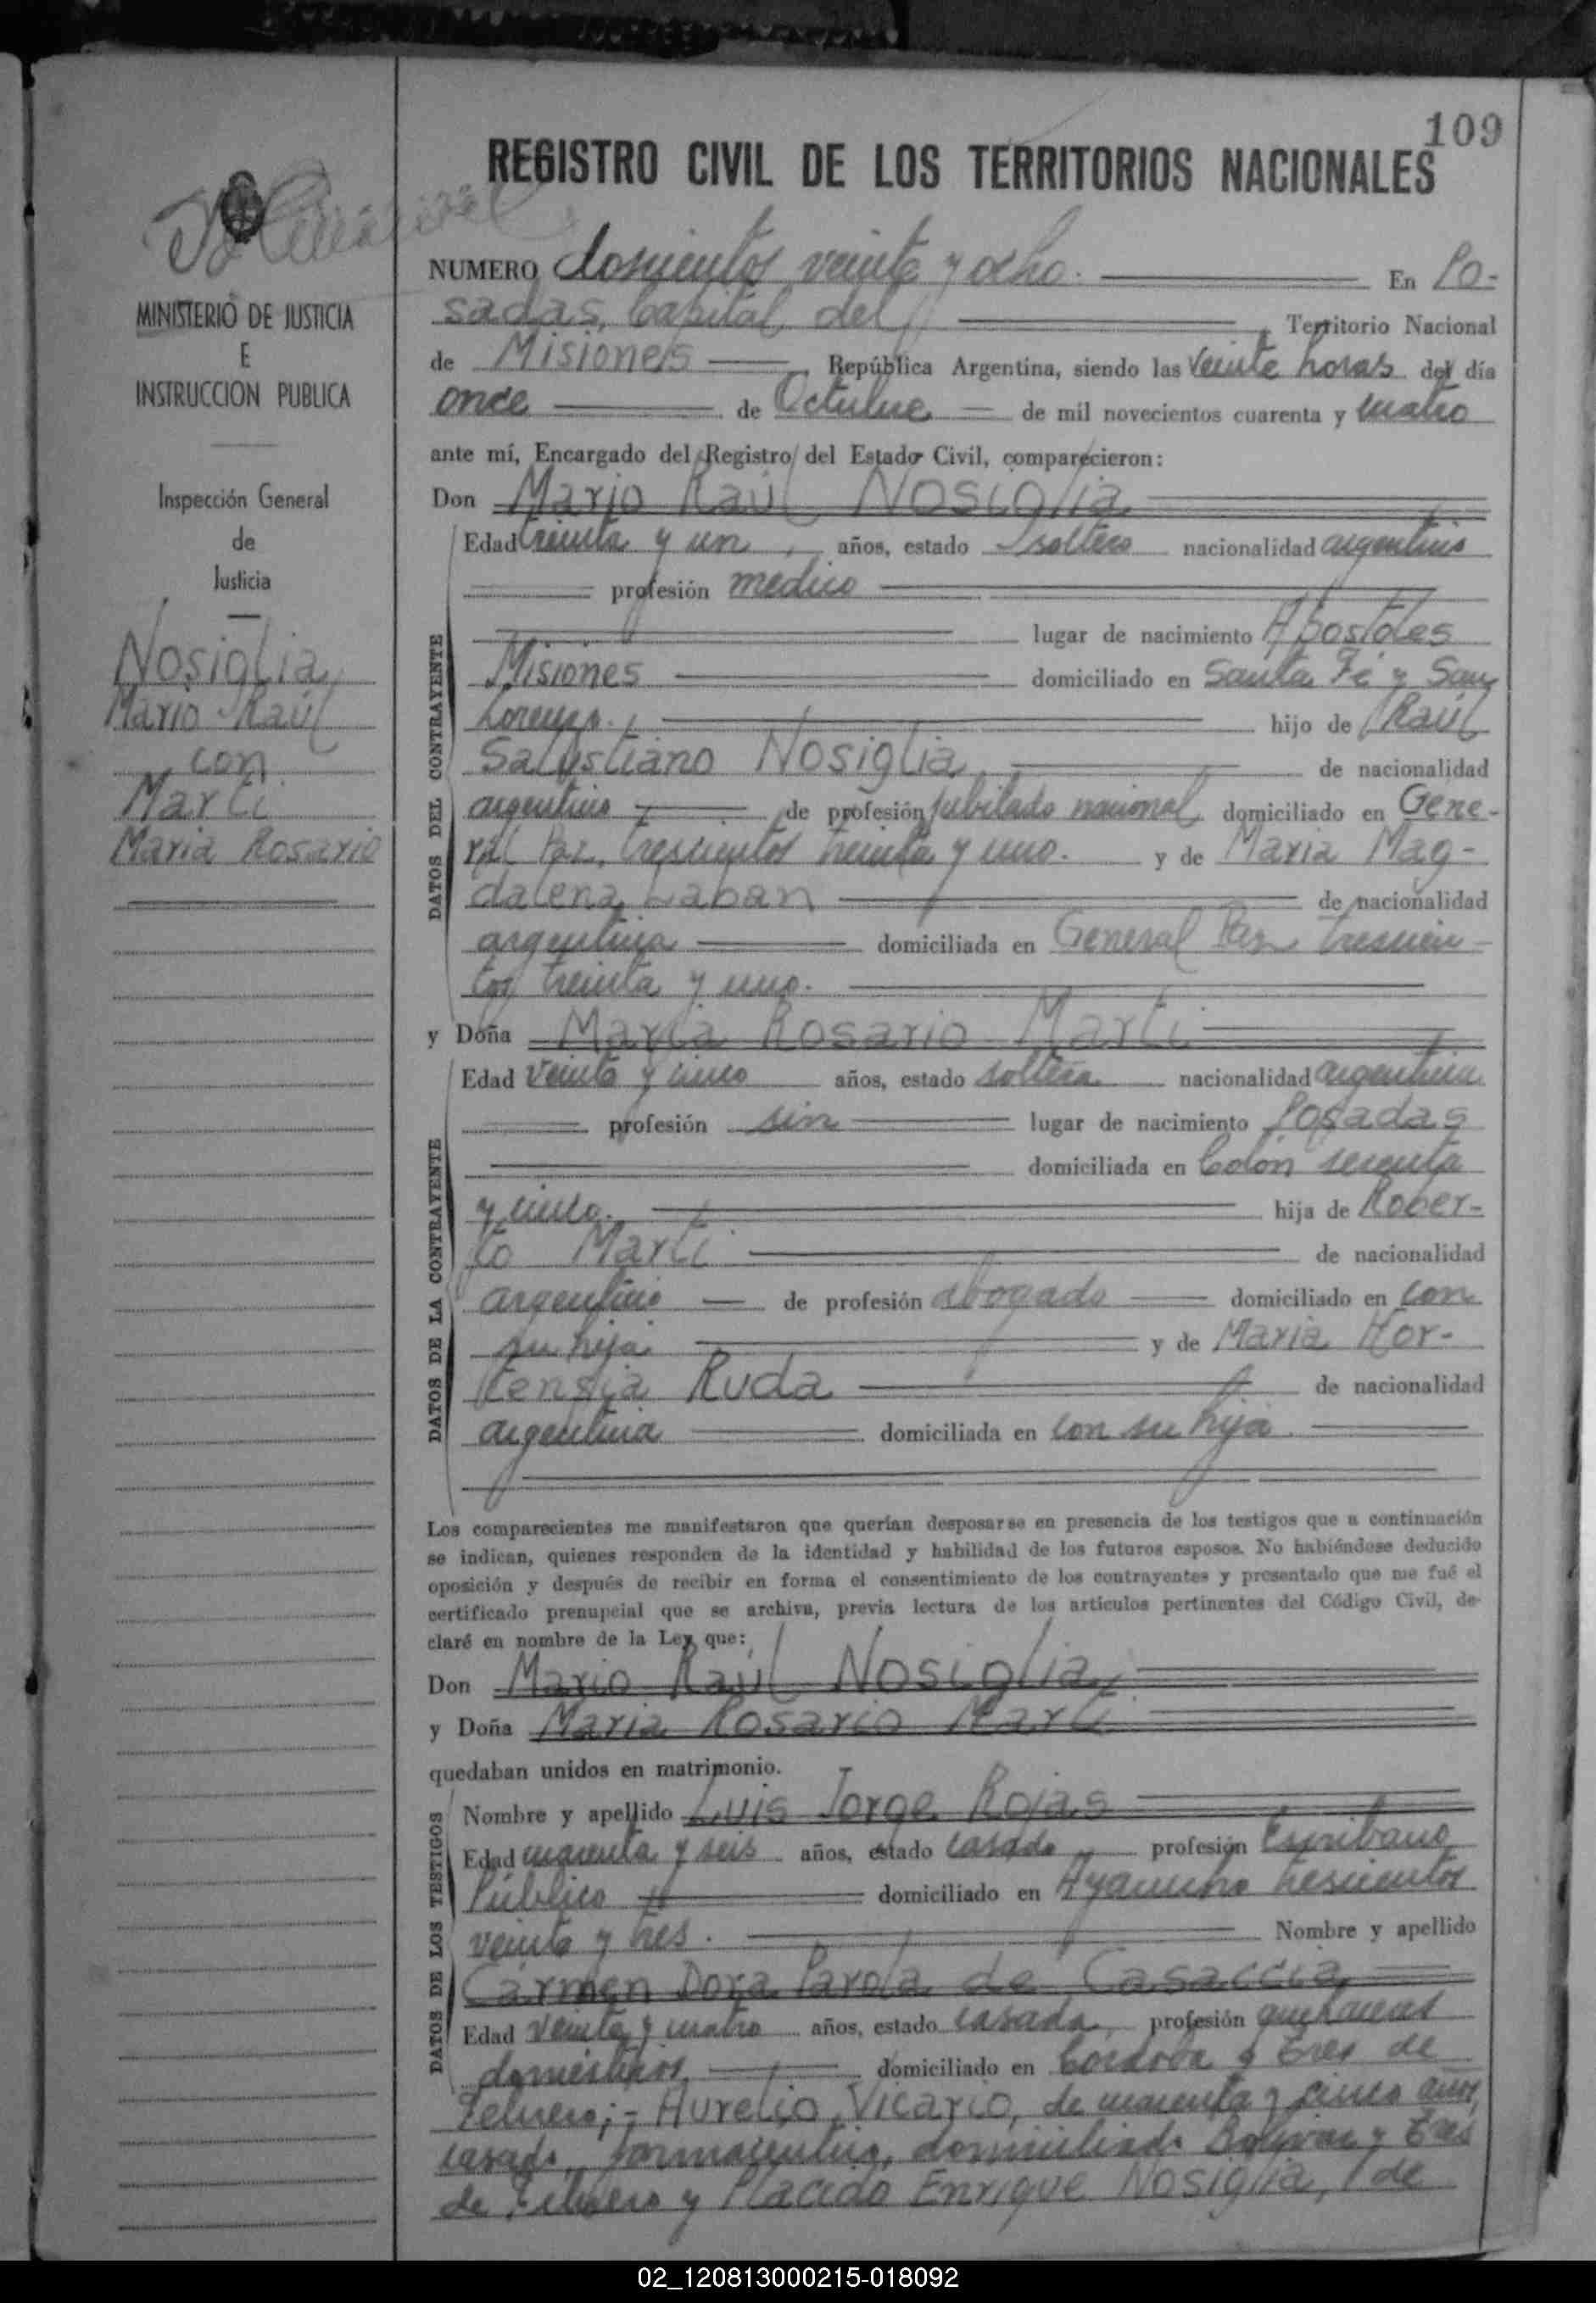 109
REGISTRO CIVIL DE LOS TERRITORIOS NACIONALES
MINISTERIO DE JUSTICIA
E
INSTRUCCION PUBLICA
Inspección General
de
Justicia
Nosiglia
Mario Raúl
con
Marti
Maria Rosario
NUMERO doscientos veinte y ocho. En Po-
sadas, Capital del Territorio Nacional
de Misiones, República Argentina, siendo las veinte horas del día
once de Octubre de mil novecientos cuarenta y cuatro
ante mí, Encargado del Registro del Estado Civil, comparecieron:
Don Mario Raúl Nosiglia
Edad treinta y un, años, estado soltero nacionalidad argentino
profesión médico
lugar de nacimiento Apostoles
Misiones domiciliado en Santa Fé y San
Lorenzo. hijo de Raúl
Salustiano Nosiglia de nacionalidad
argentino de profesión jubilado nacional domiciliado en Gene-
ral Paz, trescientos treinta y uno. y de Maria Mag-
dalena Laban de nacionalidad
argentina domiciliada en General Paz trescien-
tos treinta y uno.
y Doña Maria Rosario Marti
Edad veinte y cinco años, estado soltera nacionalidad argentina
profesión sin lugar de nacimiento Posadas
domiciliada en Colón sesenta
y cinco. hija de Rober-
to Marti de nacionalidad
argentino de profesión abogado domiciliado en con
su hija y de Maria Hor-
tensia Ruda de nacionalidad
argentina domiciliada en con su hija.
DATOS DEL CONTRAYENTE
DATOS DE LA CONTRAYENTE
Los comparecientes me manifestaron que querían desposarse en presencia de los testigos que a continuación
se indican, quienes responden de la identidad y habilidad de los futuros esposos. No habiéndose deducido
oposición y después de recibir en forma el consentimiento de los contrayentes y presentado que me fué el
certificado prenupcial que se archiva, previa lectura de los artículos pertinentes del Código Civil, de-
claré en nombre de la Ley que:
Don Mario Raúl Nosiglia
y Doña Maria Rosario Marti
quedaban unidos en matrimonio.
DATOS DE LOS TESTIGOS
Nombre y apellido Luis Jorge Rojas
Edad cuarenta y seis años, estado casado profesión Escribano
Público domiciliado en Ayacucho trescientos
veinte y tres. Nombre y apellido
Carmen Dora Parola de Casaccia
Edad veinte y cuatro años, estado casada, profesión quehaceres
domésticos, domiciliado en Córdova y Tres de
Febrero;- Aurelio Vicario, de cuarenta y cinco años,
casado, farmaceutico, domiciliado Bolivar y Tres
de Febrero y Placido Enrique Nosiglia, de
02_120813000215-018092